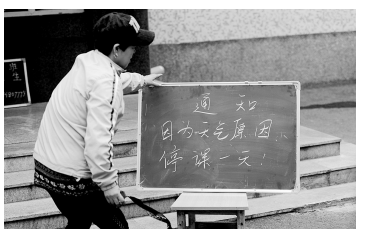 通知
因为天气原因.
停课一天!